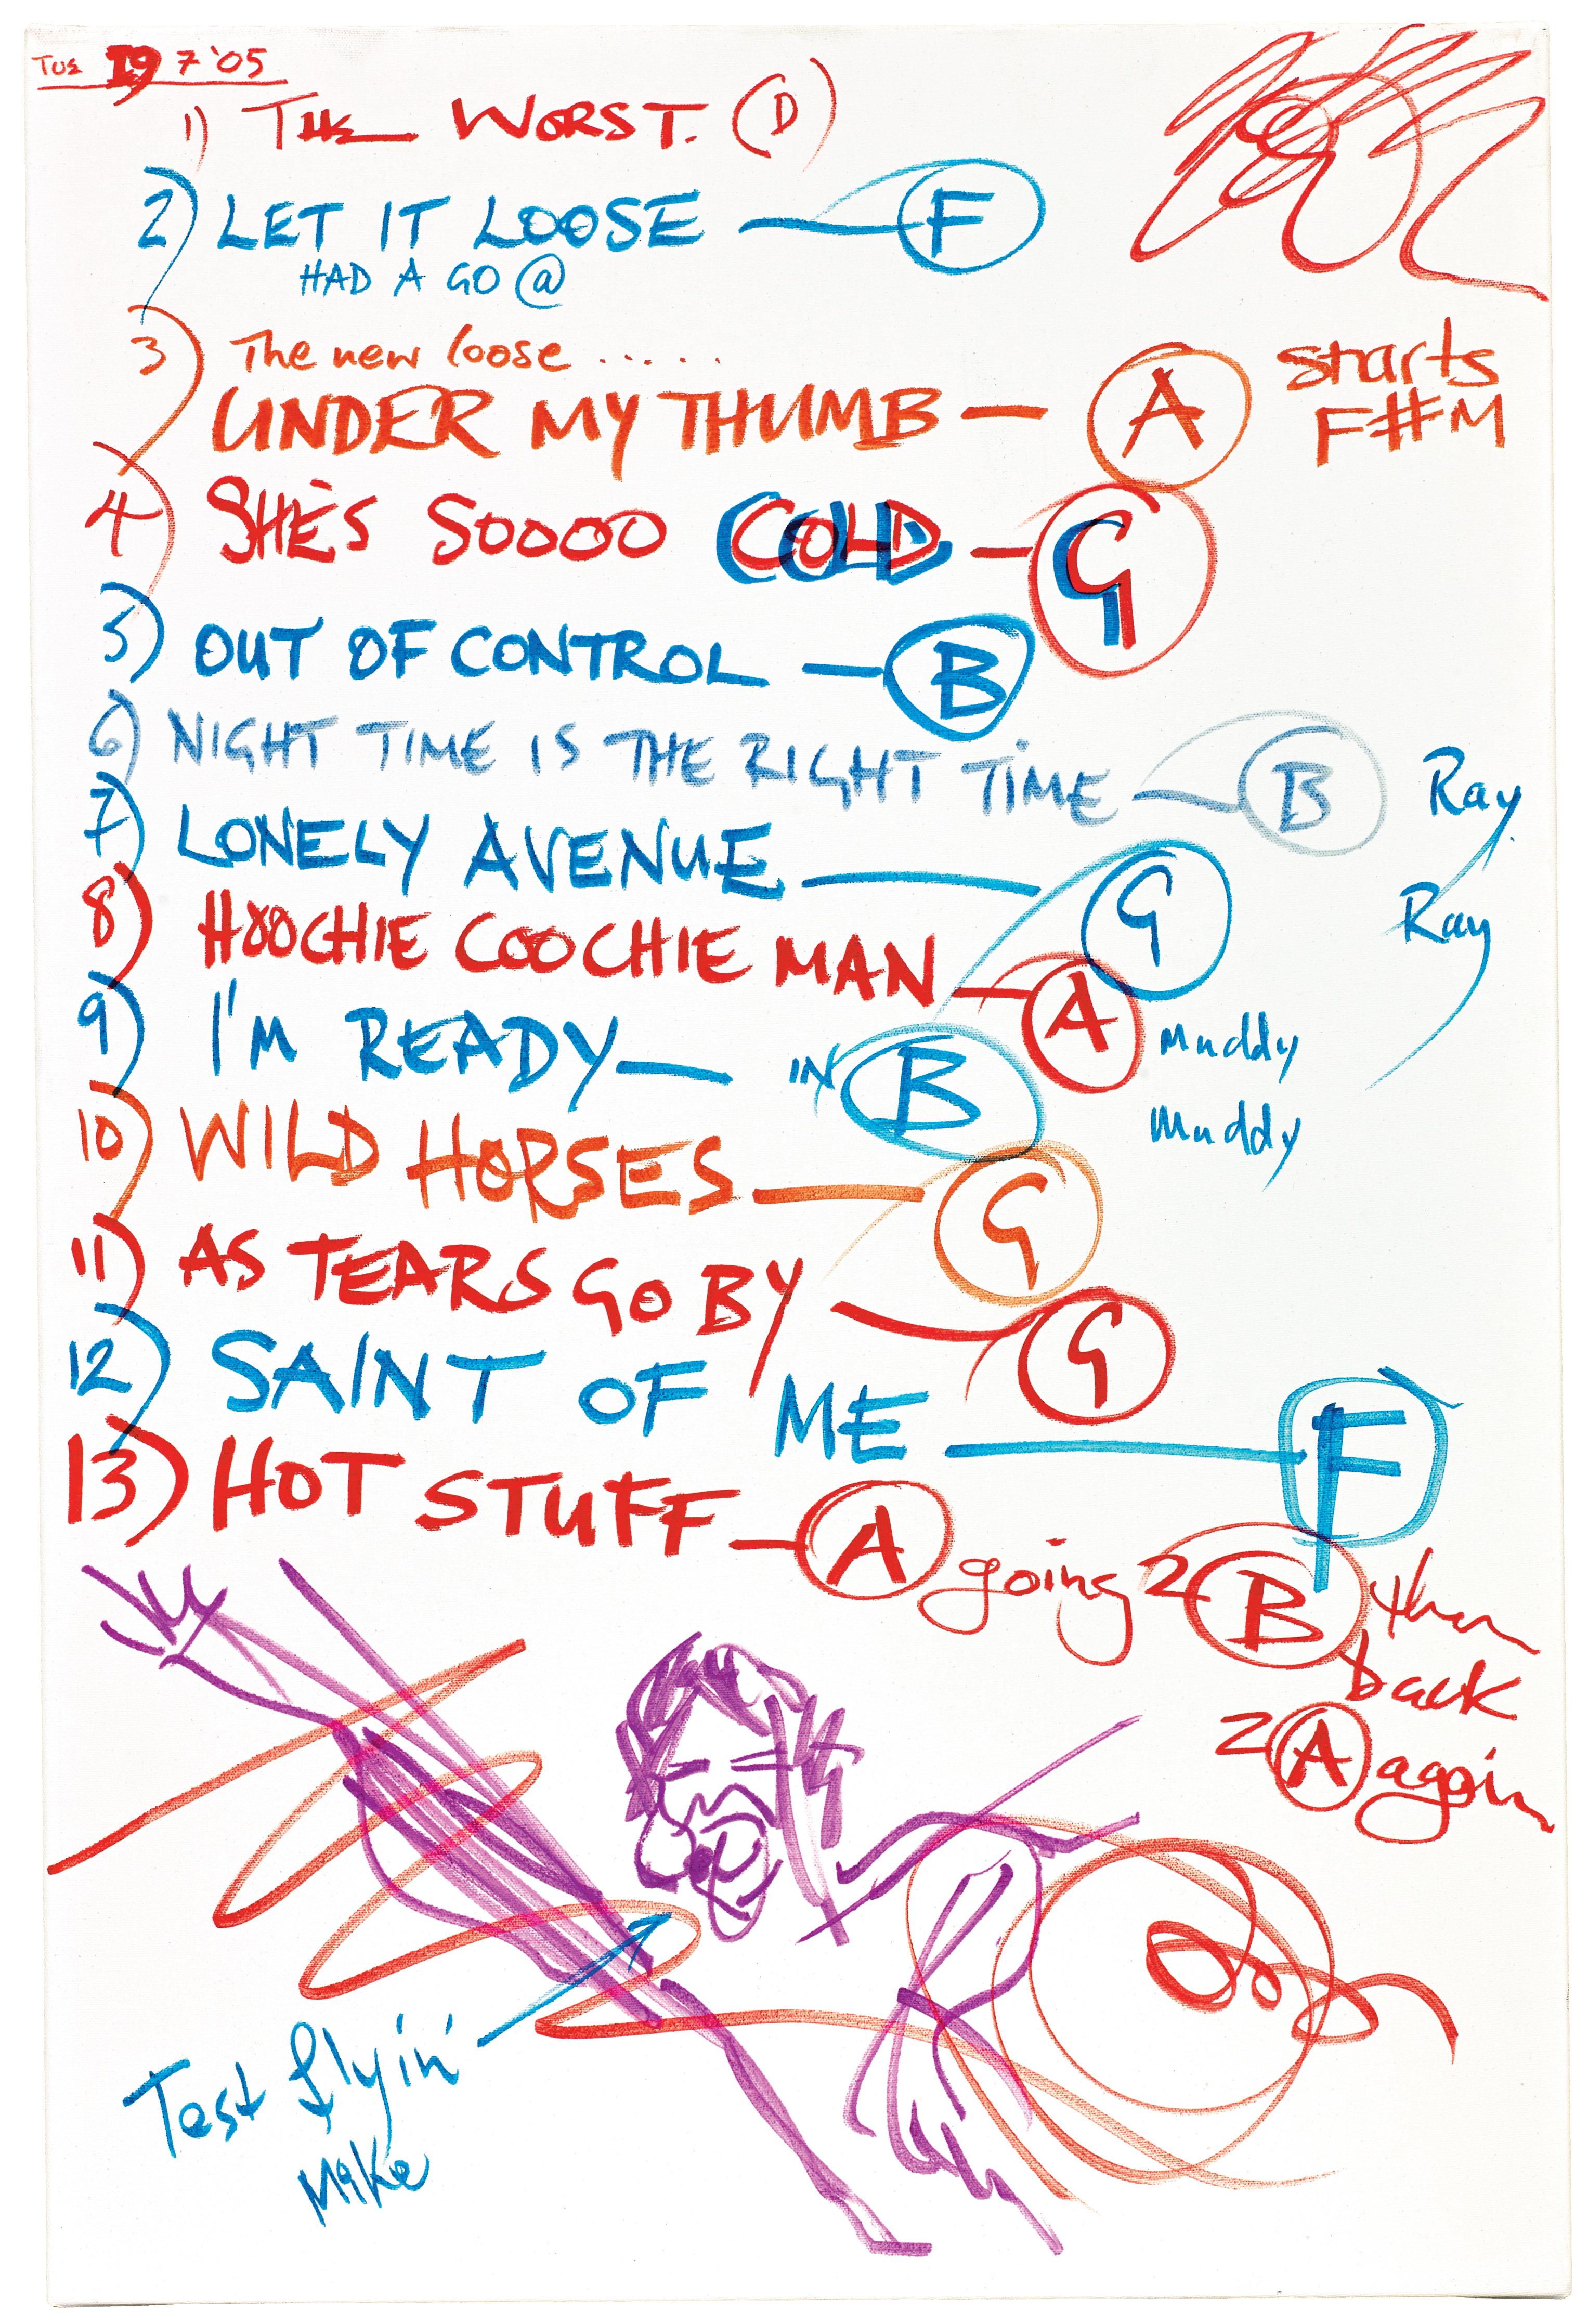 TUE 19 7 '05
1) THE WORST. (D)
2) LET IT LOOSE — F
HAD A GO @
3) The new loose .....
UNDER MY THUMB — A starts F#M
4) SHE'S SOOOO COLD — G
5) OUT OF CONTROL — B
6) NIGHT TIME IS THE RIGHT TIME — B Ray
7) LONELY AVENUE — G Ray
8) HOOCHIE COOCHIE MAN — A Muddy
9) I'M READY — IN B Muddy
10) WILD HORSES — G
11) AS TEARS GO BY — G
12) SAINT OF ME — F
13) HOT STUFF — A going 2 B then
back
2 A again
Test flyin'
Mike